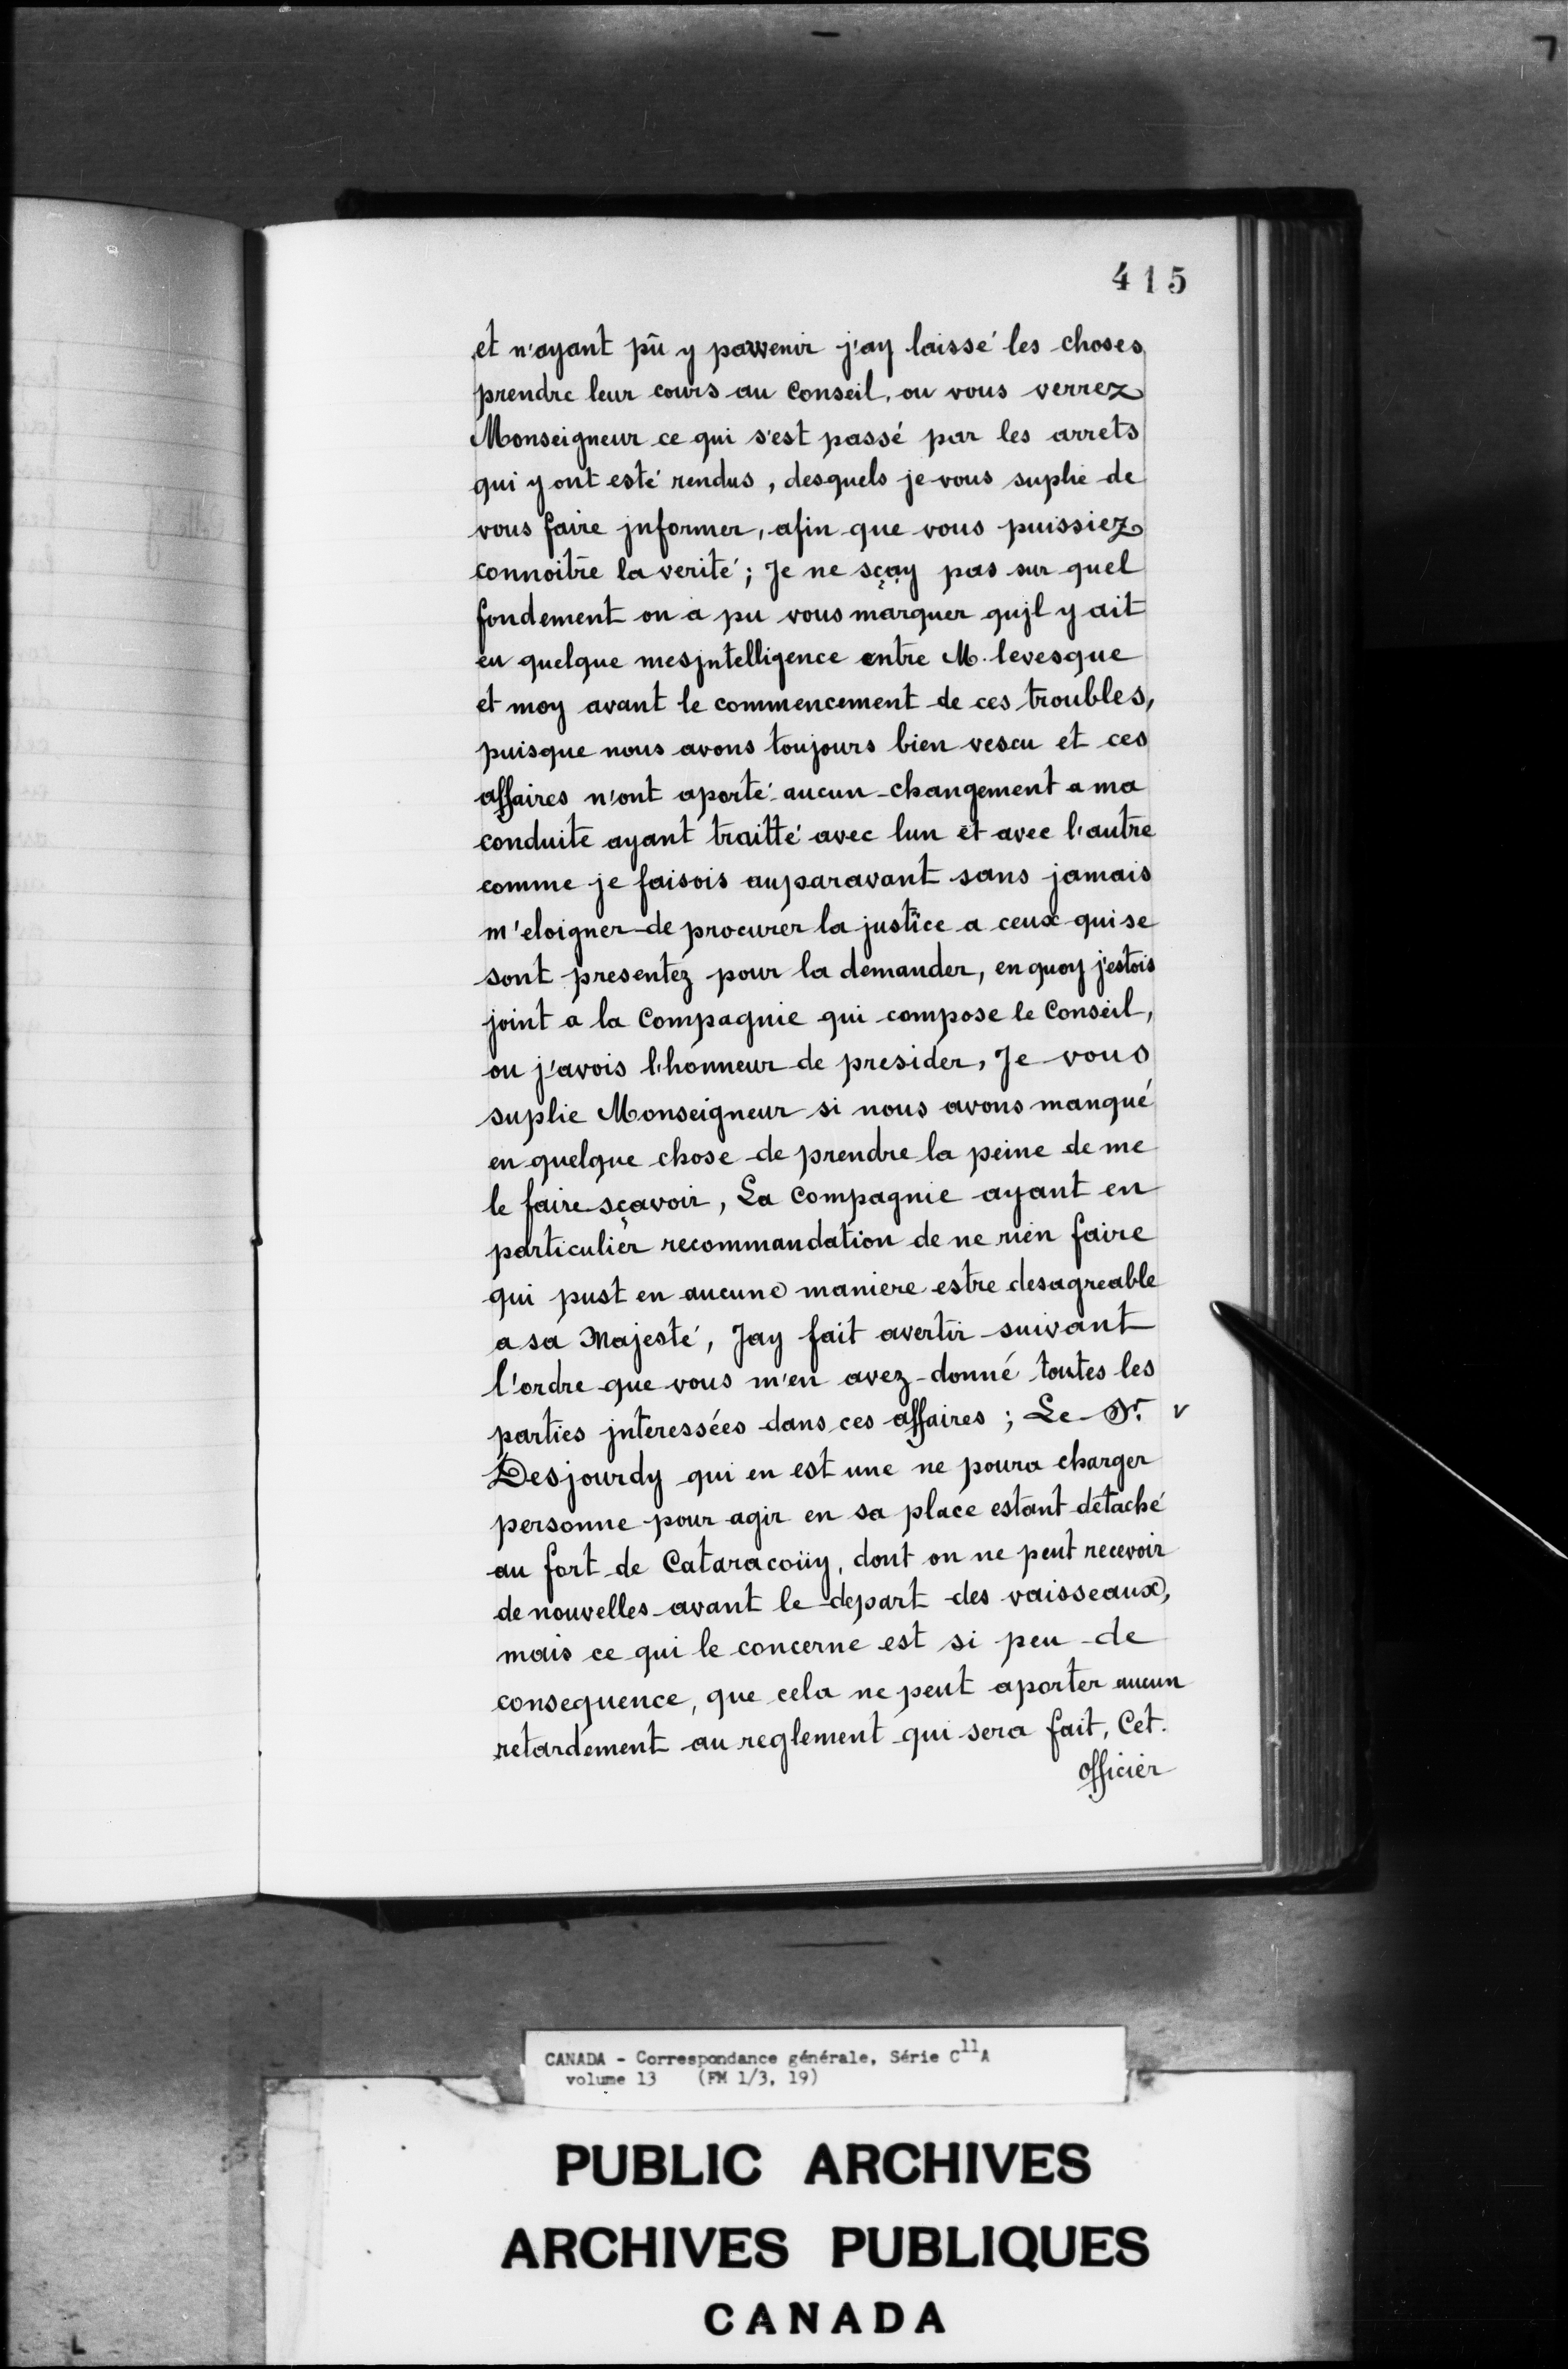 415
et n'ayant pû y parvenir j'ay laissé les choses
prendre leur cours au Conseil, ou vous verrez
Monseigneur ce qui s'est passé par les arrets
qui y ont esté rendus, desquels je vous suplie de
vous faire jnformer, afin que vous puissiez
connoitre la verité; Je ne sçay pas sur quel
fondement on a pu vous marquer qujl y ait
eu quelque mesjntelligence entre M. levesque
et moy avant le commencement de ces troubles,
puisque nous avons toujours bien vescu et ces
affaires n'ont aporté aucun changement a ma
conduite ayant traitté avec lun et avec l'autre
comme je faisois auparavant sans jamais
m'eloigner de procurer la justice a ceux qui se
sont presentez pour la demander, en quoy j'estois
joint a la Compagnie qui compose le Conseil,
ou j'avois l'honneur de presider, Je vous
suplie Monseigneur si nous avons manqué
en quelque chose de prendre la peine de me
le faire sçavoir, La Compagnie ayant en
particulier recommandation de ne rien faire
qui pust en aucune maniere estre desagreable
a sa Majesté, Jay fait avertir suivant
l'ordre que vous m'en avez donné toutes les
parties jnteressées dans ces affaires; Le Sr. v
Desjourdy qui en est une ne poura charger
personne pour agir en sa place estant détaché
au fort de Cataracoüy, dont on ne peut recevoir
de nouvelles avant le depart des vaisseaux,
mais ce qui le concerne est si peu de
consequence, que cela ne peut aporter aucun
retardement au reglement qui sera fait, Cet
officier
CANADA - Correspondance générale, Série C11A
volume 13 (FM 1/3, 19)
PUBLIC ARCHIVES
ARCHIVES PUBLIQUES
CANADA